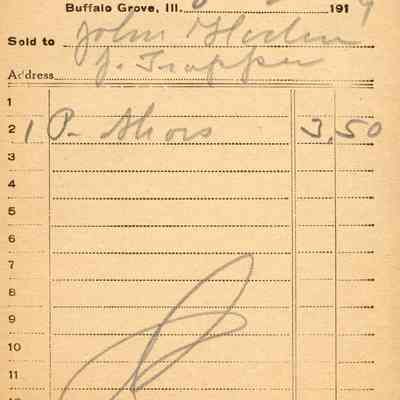 Buffalo Grove, Ill. 1919
Sold to John
J. Trapper
Address
1
2 1 P. Shoes 3.50
3
4
5
6
7
8
9
10
11